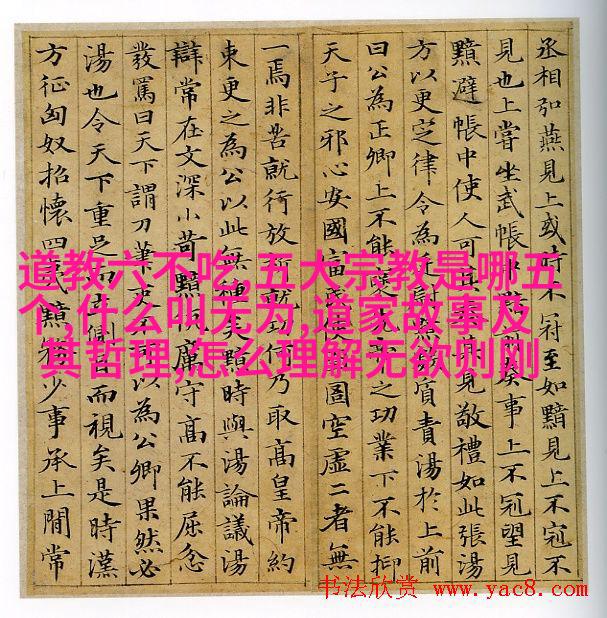 丞相弘燕見上或時不冠至如黯見上不冠不
見也上嘗坐武帳中奏事上不冠望見
黯避帳中使人可其見敬禮如此張湯
方以更定律令為質責湯於上前
曰公為正卿上不能之功業下不能抑
天子之邪心安國富民使圄空虛二者無
一焉非苦就行放就功何乃取高皇帝約
束更之為公以此無種矣黯時與湯論議湯
辯常在文深小苛黯厲守高不能屈忿
發罵曰天下謂刀筆吏不可以為公卿果然必
湯也令天下重足而側目而視矣是時漢
方征匈奴招懷四夷黯務少事承上間常
道教六不吃,五大宗教是哪五
个,什么叫无为,道家故事及
其哲理,怎么理解无欲则刚
书法欣赏 www.yac8.com